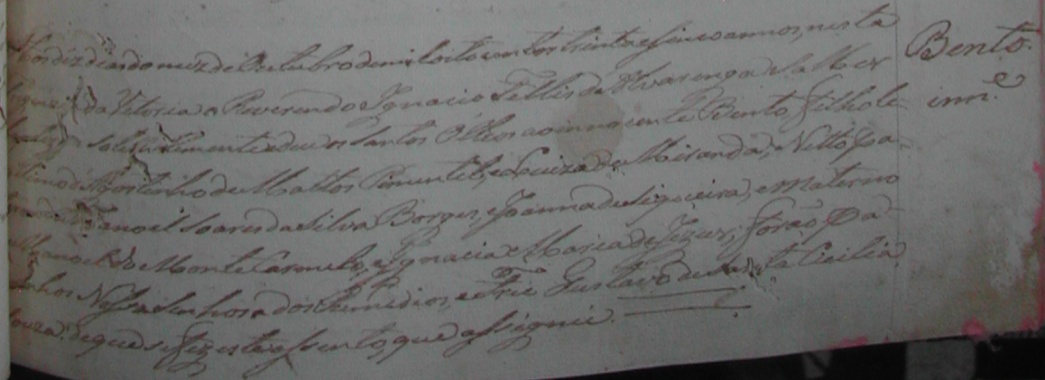 Aos dez dias do mez de Outubro de mil oito centos trinta e sinco annos, nesta
da Vitoria o Reverendo Ignacio Tellis de Alvarenga
solenemente e deu os santos Olios ao innocente Bento, filho le-
timo de Agostinho de Mattos Pimentel, e Luiza de Miranda, Netto pa-
Manoel Soares da Silva Borges, e Joanna de Siqueira, e Materno
Manoel do Monte Carmelo, e Ignacia Maria de Jezus; forão Pa-
inhos Nossa Senhora dos Remedios, e Frei Gustavo de Santa Cicilia
Souza: de que se fez este assento, que assignei.
Bento.
inn.e